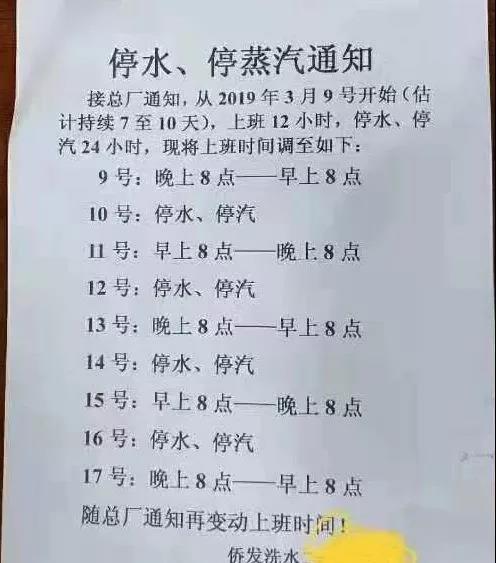 停水、停蒸汽通知
接总厂通知，从2019年3月9号开始（估
计持续7至10天），上班12小时，停水、停
汽24小时，现将上班时间调至如下：
9号：晚上8点——早上8点
10号：停水、停汽
11号：早上8点——晚上8点
12号：停水、停汽
13号：晚上8点——早上8点
14号：停水、停汽
15号：早上8点——晚上8点
16号：停水、停汽
17号：晚上8点——早上8点
随总厂通知再变动上班时间！
侨发洗水